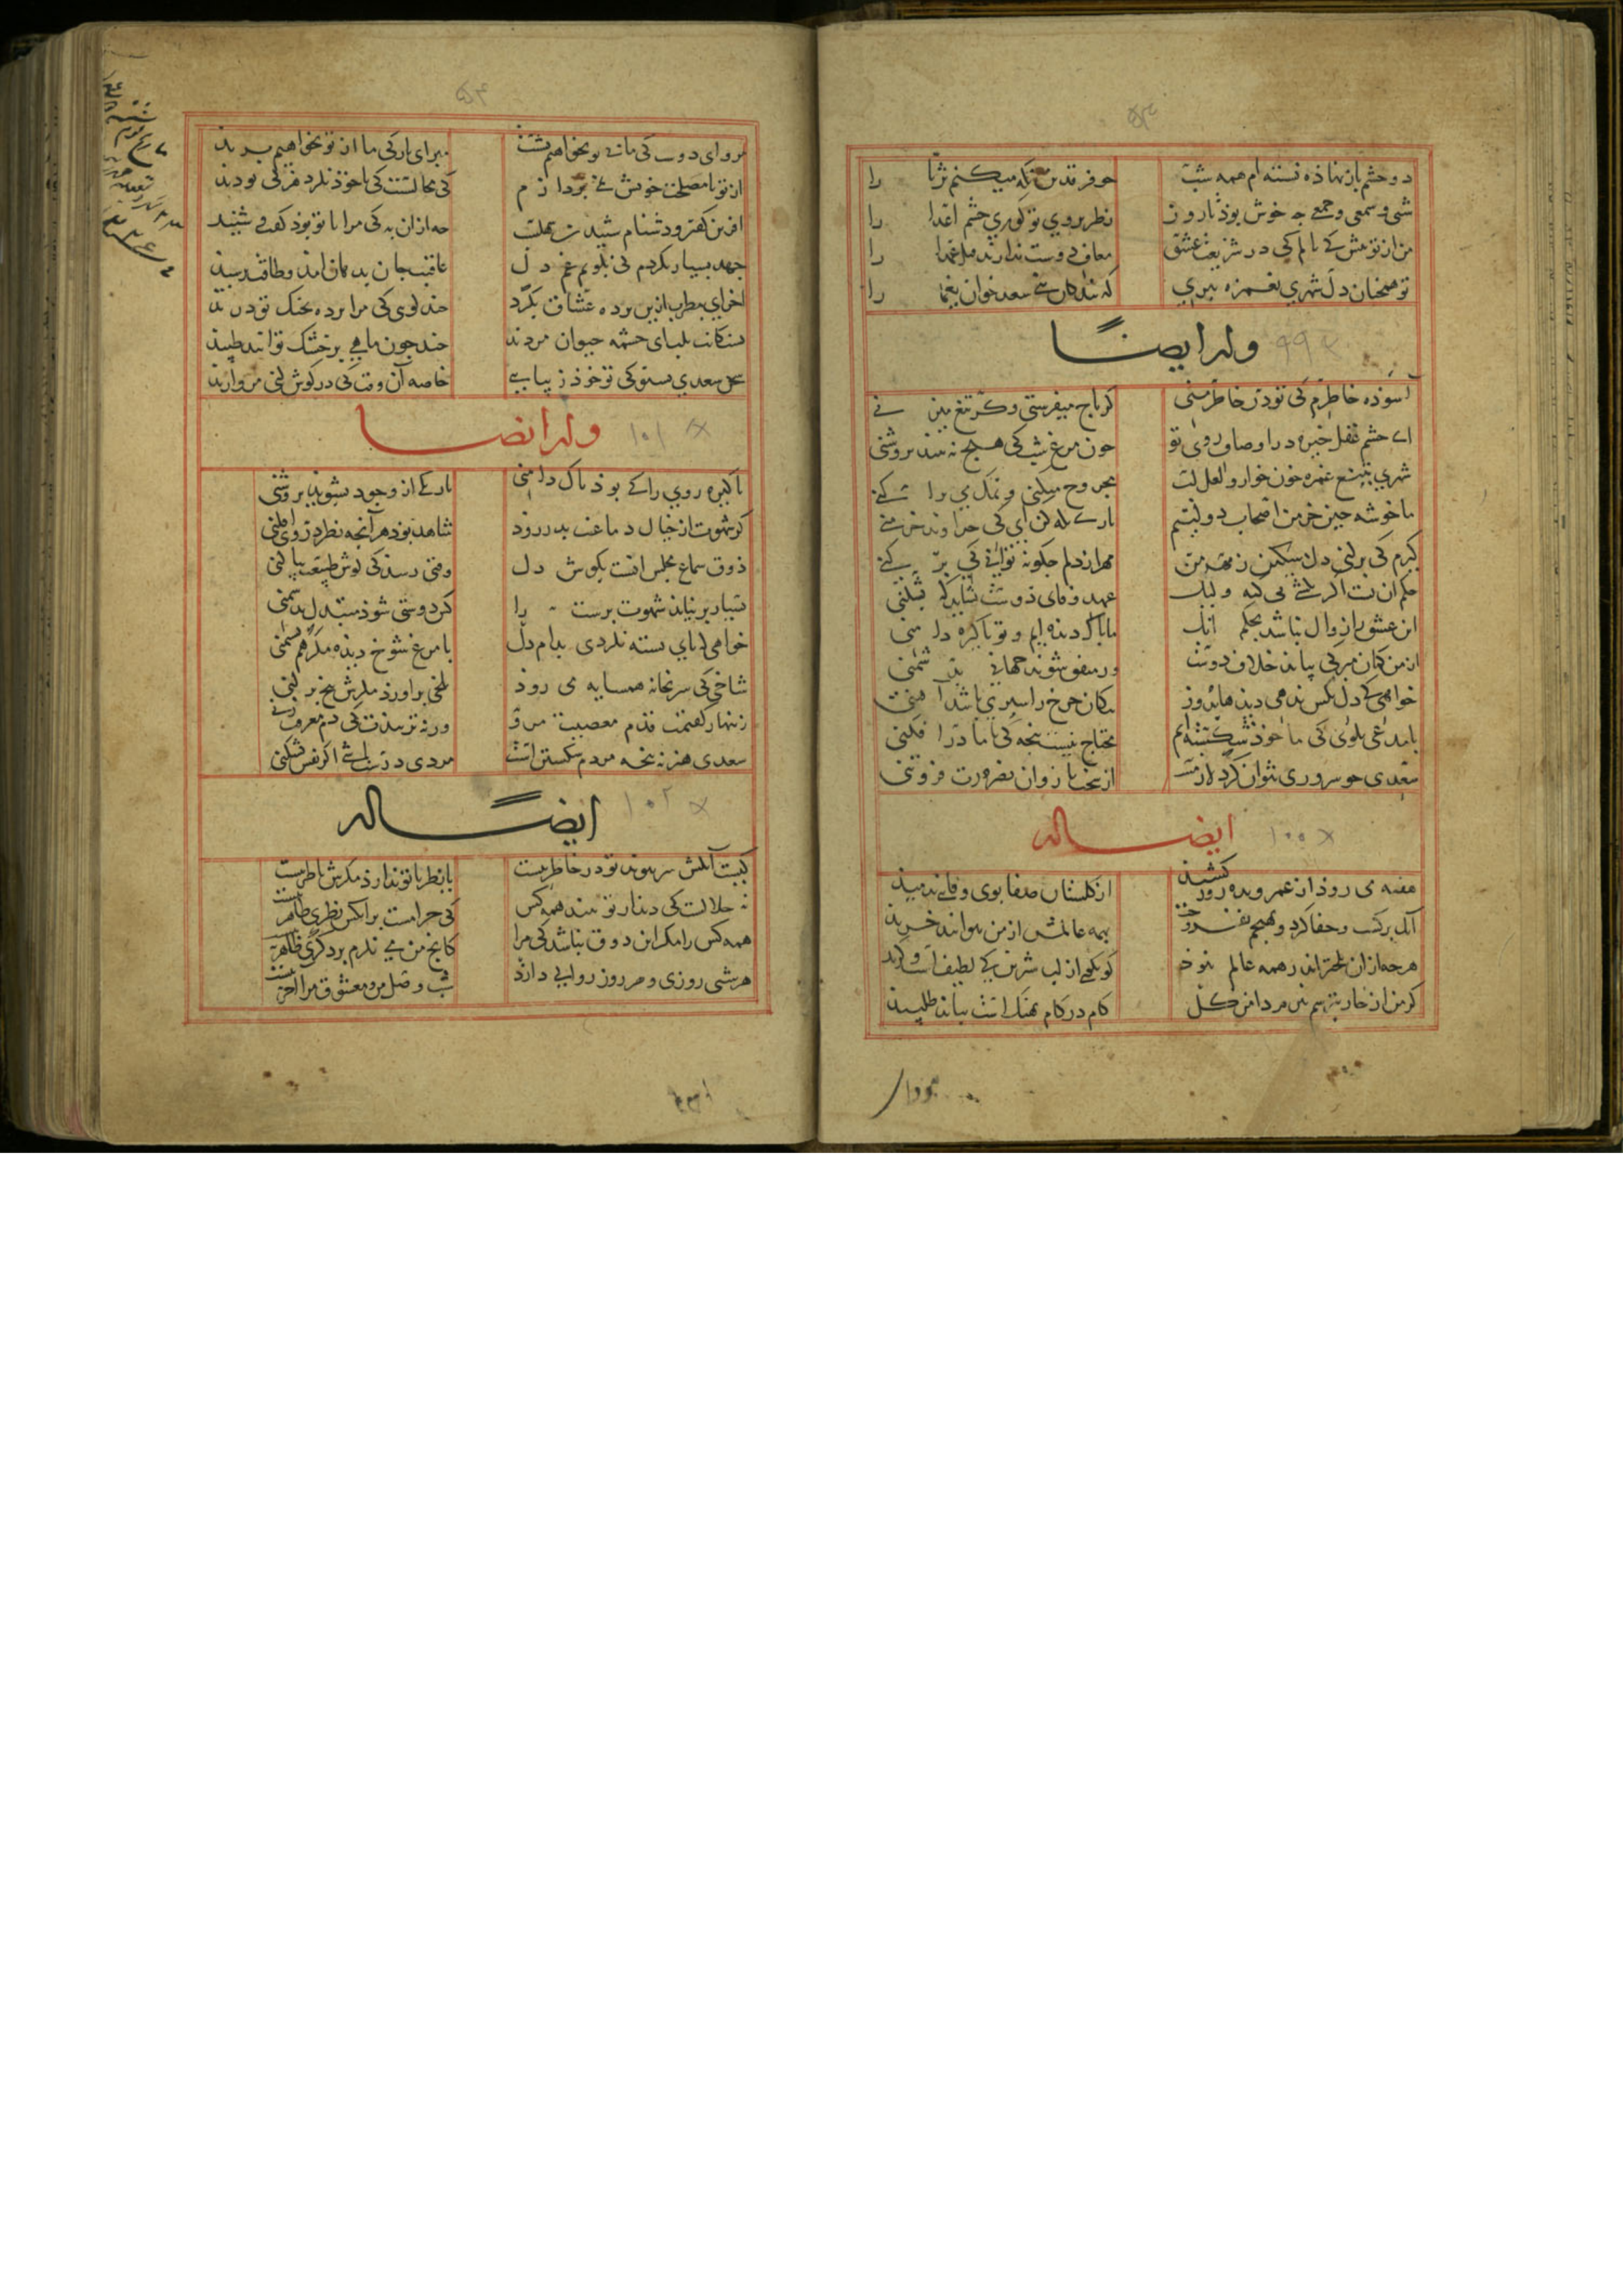 دو چشم باز نهاذه نشسته ام همه شب
چو فرقدین نکه میکنم ثریا را
شبی و شمعی و جمعی چه خوش بوذ تا روز
نظر بروی تو کوری چشم اعدا را
من از تو پیش کی نالم کی در شریعت عشق
معاف دوست ندارند قتل عمدا را
تو همچنان دل شهری بغمزه ببری
که بندکان بنی سعد خوان یغما را
وله ایضاً
۹۹
آسوذه خاطرم کی تو در خاطر منی
کر تاج میفرستی و کر تیغ میزنی
ای چشم عقل خیره در اوصاف روی تو
چون مرغ شب کی هیچ نه بیند بروشنی
شهری بتیغ غمزه خون خوار و لعل لب
مجروح میکنی و نمک می پراکنی
ما خوشه چین خرمن اصحاب دولتیم
باری نکه کن ای کی خداوند خرمنی
کیرم کی برکنی دل سنکین ز مهر من
مهر از دلم چکونه توانی کی برکنی
حکم آن تست اکر بکشی بی کنه ولیک
عهد وفای دوست نشاید که بشکنی
این عشق را زوال نباشد بحکم آنک
ما باک دیذه ایم و تو باکیزه دامنی
از من کمان مبر کی بیاید خلاف دوست
ور متفق شوند جهانی بدشمنی
خواهی کی دل بکس ندهی دیذها بدوز
بیکان جرخ را سپری باشد آهنی
با مدعی بکوی کی ما خوذ شکسته ایم
محتاج نیست بنجه کی با ما درافکنی
سعدی جو سروری نتوان کرد لازمست
با سخت بازوان بضرورت فروتنی
ایضاله
۱۰۰
هفته می روذ از عمر و بده روز کشید
از کلستان صفا بوی وفای ندمید
آنک برکشت و جفا کرد و بهیجم بفروخت
بهمه عالمش از من نتوانند خرید
هرچه زان تلختر اندر همه عالم نبوذ
کو بکو از لب شیرین کی لطیفست و لذیذ
کر من از خار بترسم نبرم دامن کل
کام در کام نهنک است بباید طلبید
مرو ای دوست کی ما بی تو نخواهیم نشست
مبر ای یار کی ما از تو نخواهیم برید
از تو با مصلحت خویش نمی بردازم
کی محالست کی با خوذ نکرد هر کی تو دید
آفرین کفتن و دشنام شنیدن سهلست
چه از آن به کی مرا با تو بوذ کفت و شنید
جهد بسیار بکردم کی نکویم غم دل
عاقبت جان بدهان آمد و طاقت برسید
آخر ای مطرب ازین برده عشاق بکرد
چند کوی کی مرا برده بجنک تو درید
تشنکانت بلب ای چشمه حیوان مردند
چند چون ماهی بر خشک توانند طپید
سخن سعدی بشنو کی تو خوذ زیبایی
خاصه آن وقت کی در کوش کنی مروارید
وله ایضا
۱۰۱
باکیزه روی را کی بوذ باک دامنی
تاریکی از وجود بشوید بروشنی
کر شهوت از خیال دماغت بدر روذ
شاهد بوذ هر آنچه نظر در وی افکنی
ذوق سماع مجلس انست بکوش دل
وقتی رسد کی کوش طبیعت بیاکنی
بسیار بر نیاید شهوت برست را
کش دوستی شوذ متبدل بدشمنی
خواهی کی بای بسته نکردی بدام دل
با مرغ شوخ دیذه مکن هم نشیمنی
شاخی کی سر بخانه همسایه می روذ
تلخی برآورذ مکرش بیخ برکنی
زنهار کفتمت قدم معصیت مرو
ورنه نزیبدت کی دم معرفت زنی
سعدی هنر نه بنجه مردم شکستن است
مردی درست باشی اکر نفس بشکنی
ایضاله
۱۰۲
کیست آنکش سر بیوند تو در خاطر نیست
یا نظر با تو ندارذ مکرش ناظر نیست
نه حلالست کی دیدار تو بیند همه کس
کی حرامست بر آنکس نظری طاهر نیست
همه کس را مکر این ذوق نباشد کی مرا
کانچ من می نکرم بر دکری ظاهر نیست
هر شبی روزی و هر روز زوالی دارذ
شب وصل من و معشوق مرا آخر نیست